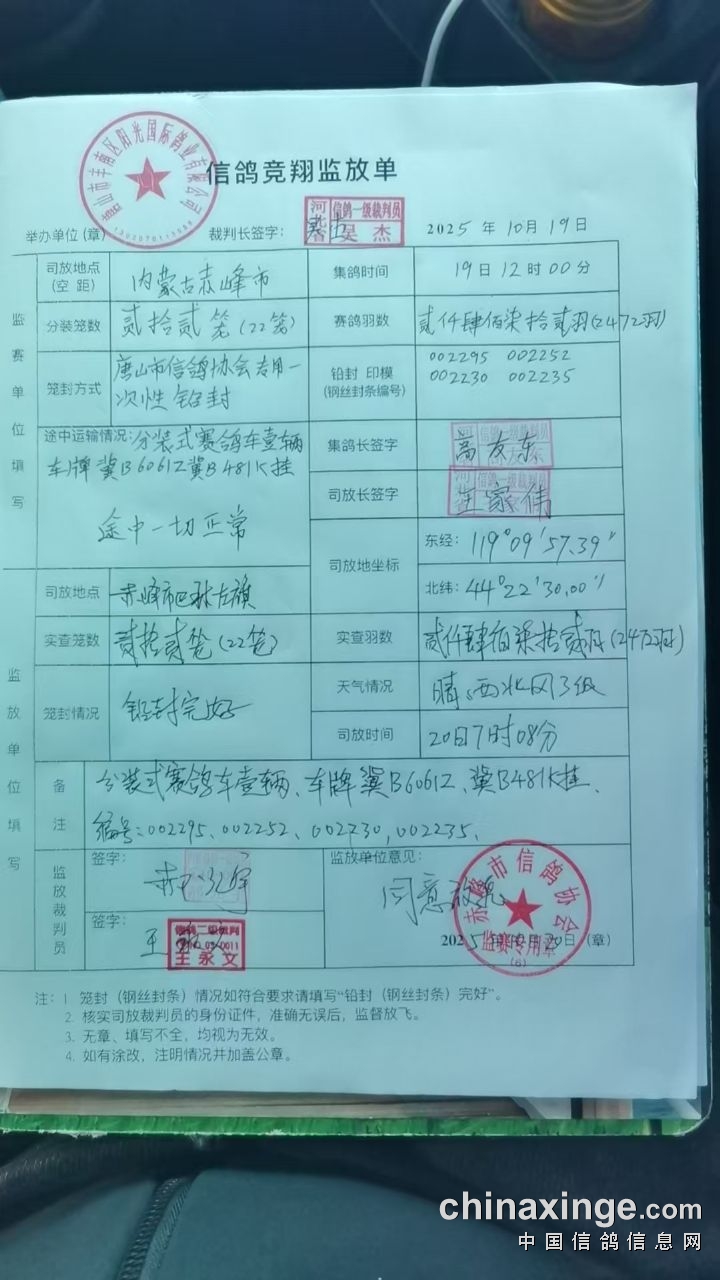 信鸽竞翔监放单
唐山市丰南区阳光国际鸽业有限公司
举办单位(章) 裁判长签字: 河北省 信鸽一级裁判员 吴杰 2025 年 10 月 19 日
监赛单位填写
司放地点(空 距) 内蒙古赤峰市 集鸽时间 19 日 12 时 00 分
分装笼数 贰拾贰笼(22笼) 赛鸽羽数 贰仟肆佰柒拾贰羽(2472羽)
笼封方式 唐山市信鸽协会专用一次性铅封 铅封 印模(钢丝封条编号) 002295 002252
002230 002235
途中运输情况: 分装式赛鸽车壹辆
车牌冀B6061Z冀B481K挂
途中一切正常
集鸽长签字 高友东
司放长签字 王家伟
司放地坐标 东经: 119°09'57.39"
北纬: 44°22'30.00"
监放单位填写
司放地点 赤峰市巴林左旗
实查笼数 贰拾贰笼(22笼) 实查羽数 贰仟肆佰柒拾贰羽(2472羽)
笼封情况 铅封完好 天气情况 晴、西北风3级
司放时间 20日7时08分
备注 分装式赛鸽车壹辆、车牌冀B6061Z、冀B481K挂、
编号:002295、002252、002230、002235、
监放裁判员 签字:
签字: 信鸽二级裁判 王永文
监放单位意见:
同意放飞
赤峰市信鸽协会
监赛专用章
(6)
2025 年 10 月 20 日 (章)
注: 1. 笼封(钢丝封条)情况如符合要求请填写“铅封(钢丝封条)完好”。
2. 核实司放裁判员的身份证件,准确无误后,监督放飞。
3. 无章、填写不全,均视为无效。
4. 如有涂改,注明情况并加盖公章。
chinaxinge.com
中国信鸽信息网